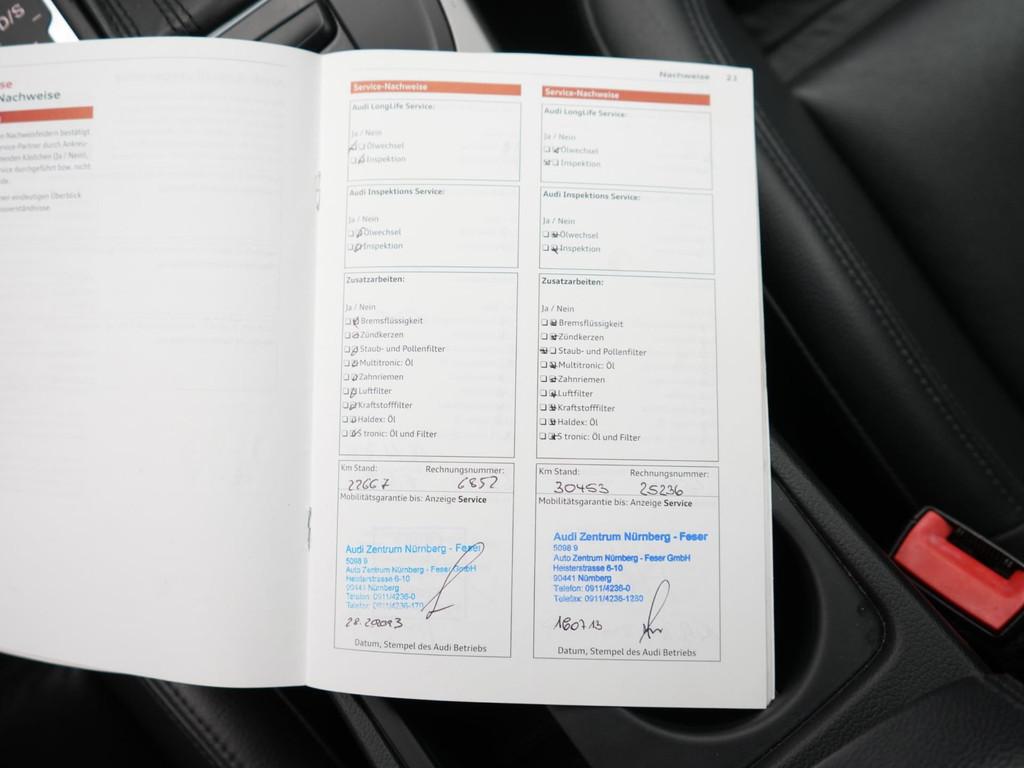 D/S
Nachweise 21
se
Nachweise
n Nachweisfeldern bestätigt
rvice-Partner durch Ankreu-
enden Kästchen (Ja / Nein),
vice durchgeführt bzw. nicht
de.
ner eindeutigen Überblick
sverständnisse
Service-Nachweise
Audi LongLife Service:
Ja / Nein
Ölwechsel
Inspektion
Audi Inspektions Service:
Ja / Nein
Ölwechsel
Inspektion
Zusatzarbeiten:
Ja / Nein
Bremsflüssigkeit
Zündkerzen
Staub- und Pollenfilter
Multitronic: Öl
Zahnriemen
Luftfilter
Kraftstofffilter
Haldex: Öl
S tronic: Öl und Filter
Km Stand: Rechnungsnummer:
22667 6852
Mobilitätsgarantie bis: Anzeige Service
Audi Zentrum Nürnberg - Feser
5098 9
Auto Zentrum Nürnberg - Feser GmbH
Heisterstrasse 6-10
90441 Nürnberg
Telefon: 0911/4236-0
Telefax: 0911/4236-170
Datum, Stempel des Audi Betriebs
Service-Nachweise
Audi LongLife Service:
Ja / Nein
Ölwechsel
Inspektion
Audi Inspektions Service:
Ja / Nein
Ölwechsel
Inspektion
Zusatzarbeiten:
Ja / Nein
Bremsflüssigkeit
Zündkerzen
Staub- und Pollenfilter
Multitronic: Öl
Zahnriemen
Luftfilter
Kraftstofffilter
Haldex: Öl
S tronic: Öl und Filter
Km Stand: Rechnungsnummer:
30453 25236
Mobilitätsgarantie bis: Anzeige Service
Audi Zentrum Nürnberg - Feser
5098 9
Auto Zentrum Nürnberg - Feser GmbH
Heisterstrasse 6-10
90441 Nürnberg
Telefon: 0911/4236-0
Telefax: 0911/4236-1280
160713
Datum, Stempel des Audi Betriebs